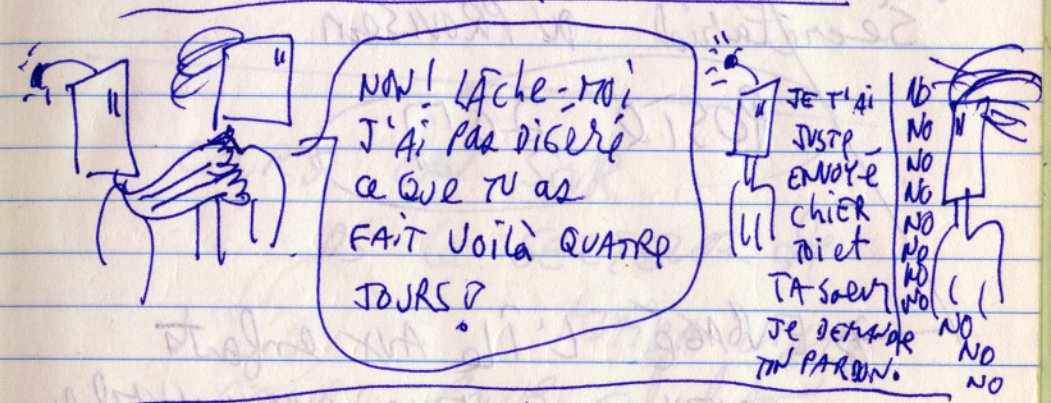 NON! LÂche-MOi
J'Ai PAS DiGéRé
CE QUE TU AS
FAiT VOiLà QUATRE
JOURS!
JE T'Ai
JUSTE
ENVOYé
CHiER
TOi et
TA SOEUR
JE DEMANDE
TON PARDON.
NO
NO
NO
NO
NO
NO
NO
NO
NO
NO
NO